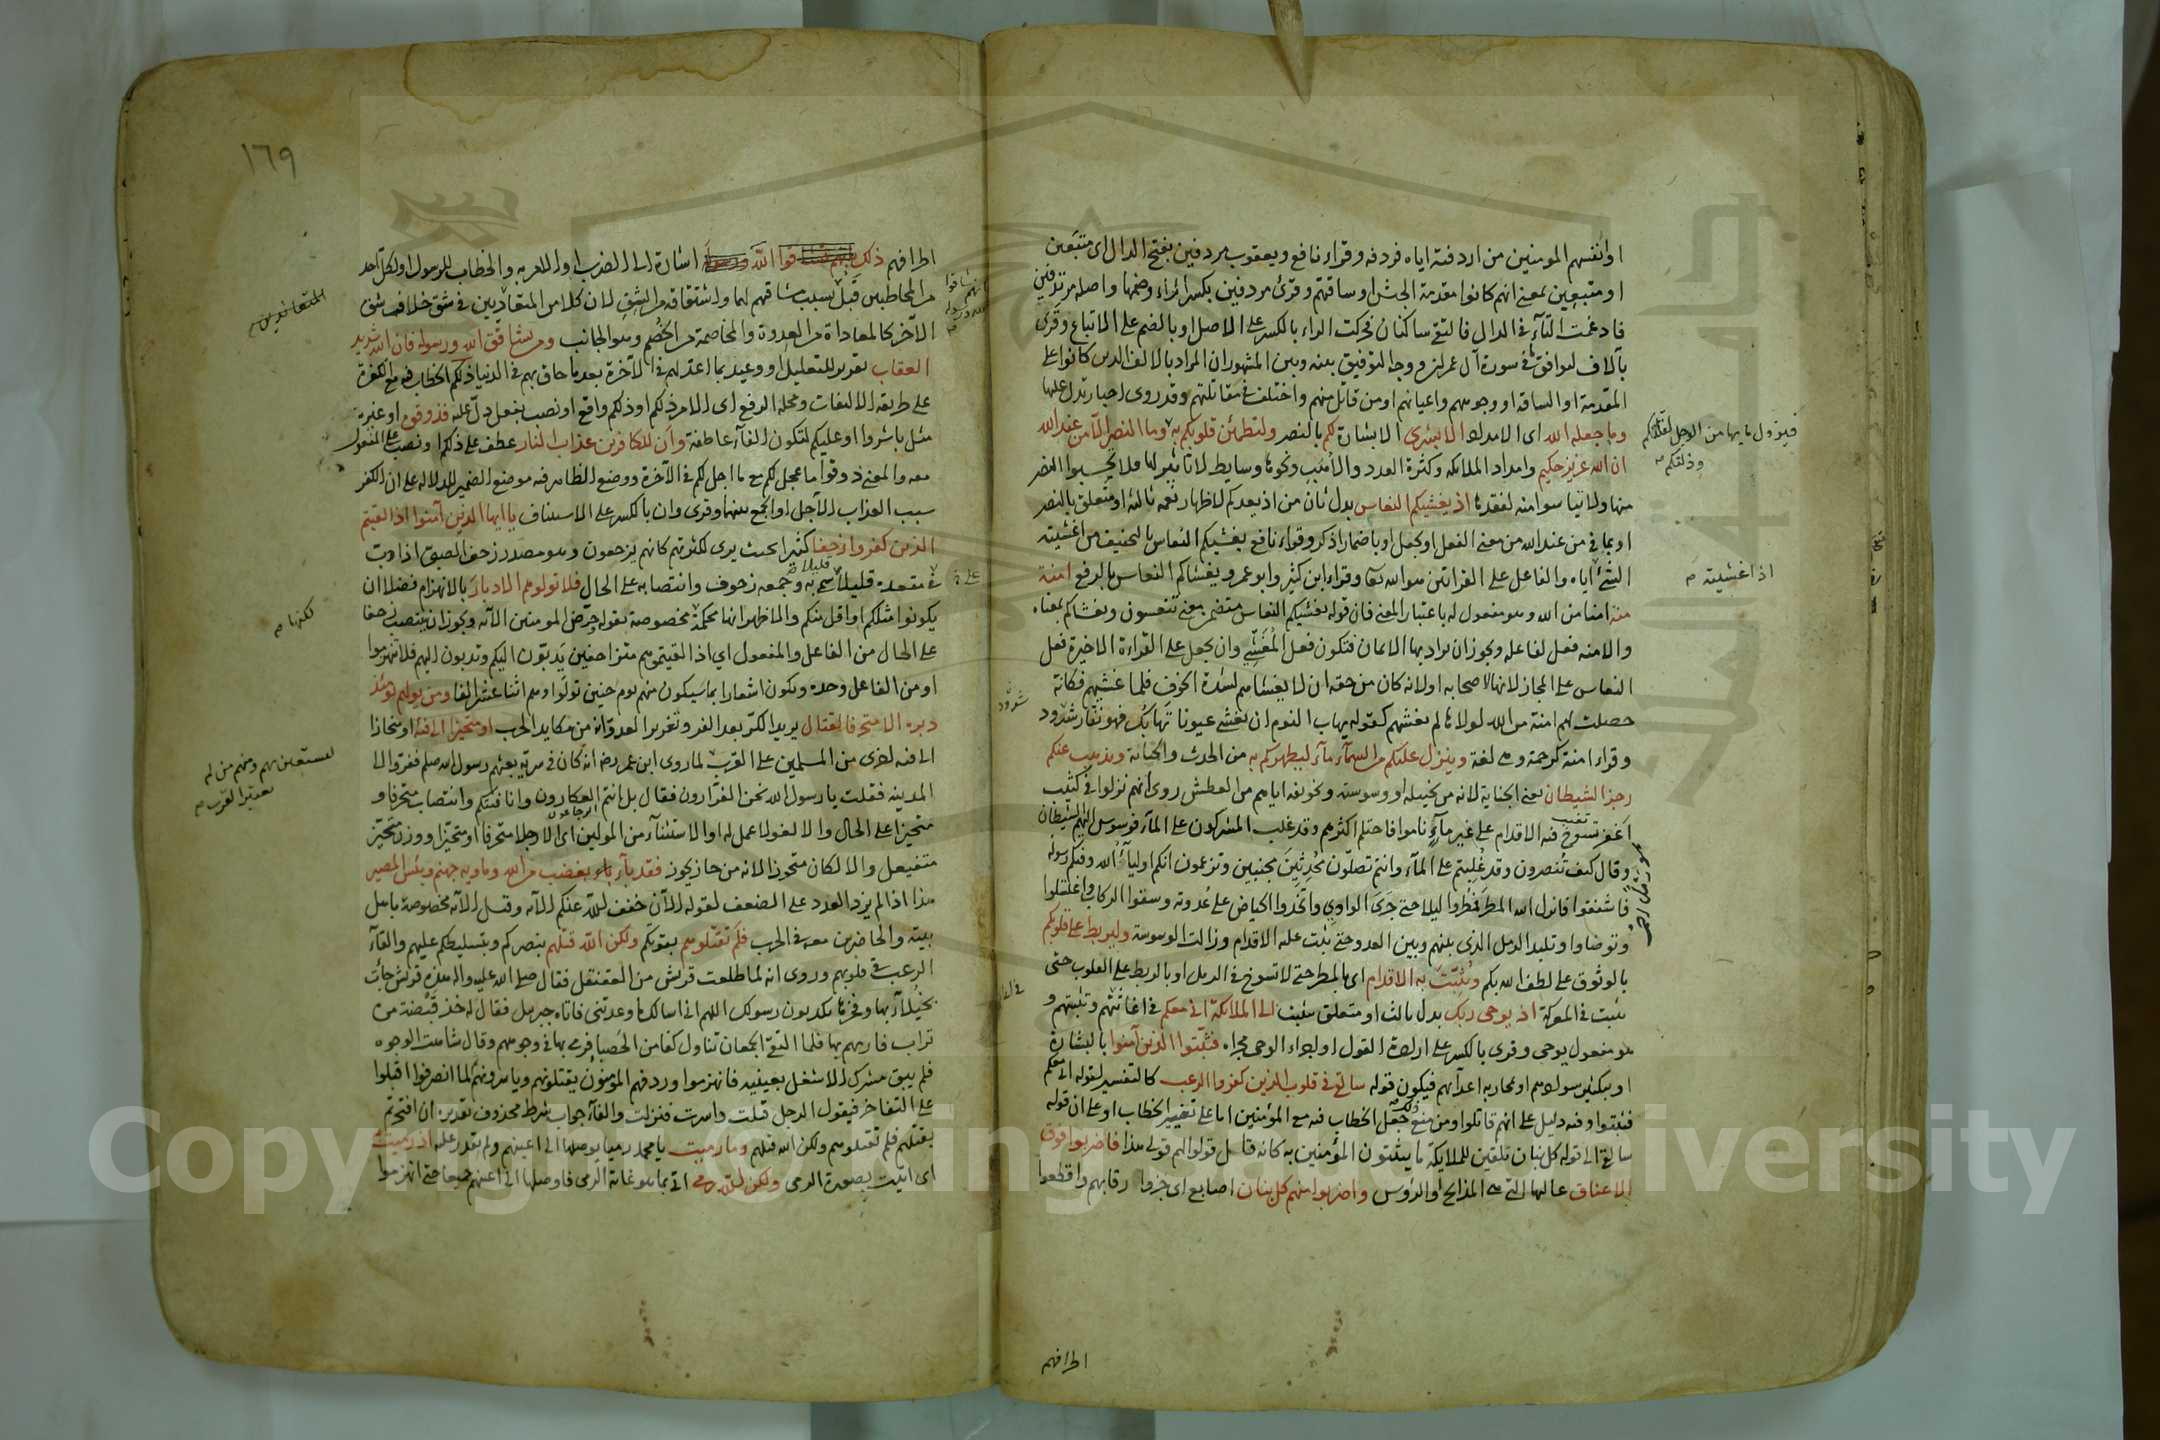 او انفسهم المومنين من اردفته اياه فردفه وقراء نافع ويعقوب مردفين بفتح الدال اى متبعين
او متبعين بمعنى انهم كانوا مقدمة الجيش او ساقتهم وقرئ مردفين بكسر الراء وضمها واصله مرتدفين
فادغمت التآء فى الدال فالتقى ساكنان فحركت الراء بالكسر على الاصل او بالضم على الاتباع وقرئ
بآلاف ليوافق ما فى سورة آل عمران ووجه التوفيق بينه وبين المشهور ان المراد بالالف الذين كانوا على
المقدمة او الساقه او وجوههم واعيانهم او من قاتل منهم واختلف فى مقاتلتهم وقد روى اخبار تدل عليها
وما جعله الله اى الامداد الا بشرى الا بشارة لكم بالنصر ولتطمئن قلوبكم به وما النصر الا من عند الله
ان الله عزيز حكيم وامداد الملائكه وكثرة العدد والاهب ونحوها وسايط لا تاثير لها فلا تحسبوا النصر
منها ولا تياسوا منه لفقدها اذ يغشيكم النعاس بدل ثان من اذ يعدكم لاظهار نعمه ثالثه او متعلق بالنصر
او بما فى من عند الله من معنى الفعل او بجعل او باضمار اذكر وقراء نافع يغشيكم النعاس بالتخفيف من اغشيته
الشئ اياه والفاعل على القرائتين هو الله تعا وقراء ابن كثير وابو عمرو يغشاكم النعاس بالرفع امنة
منه امنا من الله وهو مفعول له باعتبار المعنى فان قوله يغشيكم النعاس متضمن معنى تنعسون ويغشاكم بمعناه
والامنه فعل لفاعله ويجوز ان يراد بها الايمان فتكون فعل المغشى وان يجعل على القراءة الاخيرة فعل
النعاس على المجاز لانها لاصحابه او لانه كان من حقه ان لا يغشاهم لشدة الخوف فلما غشيهم فكانه
حصلت لهم امنة من الله لولاها لم يغشهم كقوله يهاب النوم ان يغشى عيونا تهابك فهو نفار شرود
وقراء امنة كرحمة وهى لغة وينزل عليكم من السمآء مآء ليطهركم به من الحدث والجنابة ويذهب عنكم
رجز الشيطان يعنى الجنابة لانه من تخييله او وسوسته وتخويفه اياهم من العطش روى انهم نزلوا فى كثيب
اعفر تسوخ فيه الاقدام على غير مآء وناموا فاحتلم اكثرهم وقد غلب المشركون على المآء فوسوس اليهم الشيطان
وقال كيف تنصرون وقد غلبتم على المآء وانتم تصلون محدثين مجنبين وتزعمون انكم اوليآء الله وفيكم رسوله
فاشفقوا فانزل الله المطر فمطروا ليلا حتى جرى الوادى واتخذوا الحياض على عدوته وسقوا الركاب واغتسلوا
وتوضاوا وتلبد الرمل الذى بينهم وبين العدو حتى ثبتت عليه الاقدام وزالت الوسوسة وليربط على قلوبكم
بالوثوق على لطف الله بكم ويثبت به الاقدام اى بالمطر حتى لا تسوخ فى الرمل او بالربط على القلوب حتى
يثبت فى المعركة اذ يوحى ربك بدل ثالث او متعلق بيثبت الى الملائكة انى معكم فى اعانتهم وتثبيتهم و
هو مفعول يوحى وقرئ بالكسر على ارادة القول او اجراء الوحى مجراه فثبتوا الذين آمنوا بالبشارة
او بتكثير سوادهم او محاربة اعدآئهم فيكون قوله سالقى فى قلوب الذين كفروا الرعب كالتفسير لقوله انى معكم
فثبتوا وفيه دليل على انهم قاتلوا ومن منع ذلك جعل الخطاب فيه مع المؤمنين اما على تغيير الخطاب او على ان قوله
سالقى الى قوله كل بنان تلقين للملايكة ما يثبتون المؤمنين به كانه قال قولوا لهم قولى هذا فاضربوا فوق
الاعناق عاليها التى هى المذابح او الرؤس واضربوا منهم كل بنان اصابع اى جزوا رقابهم واقطعوا
فيزول ما بها من الوجل لقلتكم
وذلتكم
اذا غشيته
شرود
اطرافهم
١٦٩
اطرافهم ذلك بانهم شاقوا الله ورسوله اشارة الى الضرب او الامر به والخطاب للرسول او لكل احد
من المخاطبين قبل بسبب مشاقتهم لهما واشتقاقه من الشق لان كلا من المتعاديين فى شق خلاف شق
الآخر كالمعاداة من العدوة والمخاصمة من الخصم وهو الجانب ومن يشاقق الله ورسوله فان الله شديد
العقاب تقرير للتعليل او وعيد بما اعد لهم فى الآخرة بعد ما حاق بهم فى الدنيا ذلكم الخطاب فيه مع الكفرة
على طريقه الالتفات ومحله الرفع اى الامر ذلكم او ذلكم واقع او نصب بفعل دل عليه فذوقوه او غيره
مثل باشروا او عليكم لتكون الفآء عاطفة وان للكافرين عذاب النار عطف على ذلكم او نصب على المفعول
معه والمعنى ذوقوا ما عجل لكم مع ما اجل لكم فى الآخرة ووضع الظاهر فيه موضع الضمير للدلاله على ان الكفر
سبب العذاب الآجل او الجمع بينهما وقرئ وان بالكسر على الاستيناف يا ايها الذين آمنوا اذا لقيتم
الذين كفروا زحفا كثيرا بحيث يرى لكثرتهم كانهم يزحفون وهو مصدر زحف الصبى اذا دب
على مقعده قليلا قليلا سمى به وجمعه زحوف وانتصابه على الحال فلا تولوهم الادبار بالانهزام فضلا ان
يكونوا مثلكم او اقل منكم والاظهر انها محكمة مخصوصة بقوله حرض المومنين الآيه ويجوز ان ينتصب زحفا
على الحال من الفاعل والمفعول اى اذا لقيتموهم متزاحفين يدبون اليكم وتدبون اليهم فلا تنهزموا
او من الفاعل وحده ويكون اشعارا بما سيكون منهم يوم حنين تولوا وهم اثنا عشر الفا ومن يولهم يومئذ
دبره الا متحرفا لقتال يريد الكر بعد الفر وتغرير العدو فانه من مكايد الحرب او متحيزا الى فئة او منحازا
الى فئه اخرى من المسلمين على القرب لما روى ابن عمر رض انه كان فى سرية بعثهم رسول الله صلم ففروا الى
المدينه فقلت يا رسول الله نحن الفرارون فقال بل انتم العكارون وانا فئتكم وانتصاب متحرفا و
متحيزا على الحال والا لغو لا عمل له او الاستثنآء من المولين اى الا رجلا متحرفا او متحيزا ووزن متحيز
متفيعل والا لكان متحوزا لانه من حاز يحوز فقد بآء بغضب من الله وماويه جهنم وبئس المصير
هذا اذا لم يزد العدد على الضعف لقوله الآن خفف الله عنكم الآيه وقيل الآيه مخصوصة باهل
بيته والحاضرين معه فى الحرب فلم تقتلوهم بقوتكم ولكن الله قتلهم بنصركم وبتسليطكم عليهم والقآء
الرعب فى قلوبهم وروى انه لما طلعت قريش من العقنقل فقال صلى الله عليه واله هذه قريش جآئت
بخيلآئها وفخرها يكذبون رسولك اللهم انى اسالك ما وعدتنى فاتاه جبرئيل فقال له خذ قبضة من
تراب فارمهم بها فلما التقى الجمعان تناول كفا من الحصبا فرمى بها فى وجوههم وقال شاهت الوجوه
فلم يبق مشرك الا شغل بعينيه فانهزموا وردفهم المؤمنون يقتلونهم وياسرونهم لما انصرفوا اقبلوا
على التفاخر فيقول الرجل قتلت واسرت فنزلت والفآء جواب شرط محذوف تقديره ان افتخرتم
بقتلهم فلم تقتلوهم ولكن الله قتلهم وما رميت يا محمد رميا يوصلها الى اعينهم ولم تقدر عليه اذ رميت
اى اتيت بصورة الرمى ولكن الله رمى اتى بما هو غاية الرمى فاوصلها الى اعينهم جميعا حتى انهزموا
المتعاندين
لكنها
ليستعين بهم ومنهم من لم
يعتبر القرب
Copyright © King Saud University